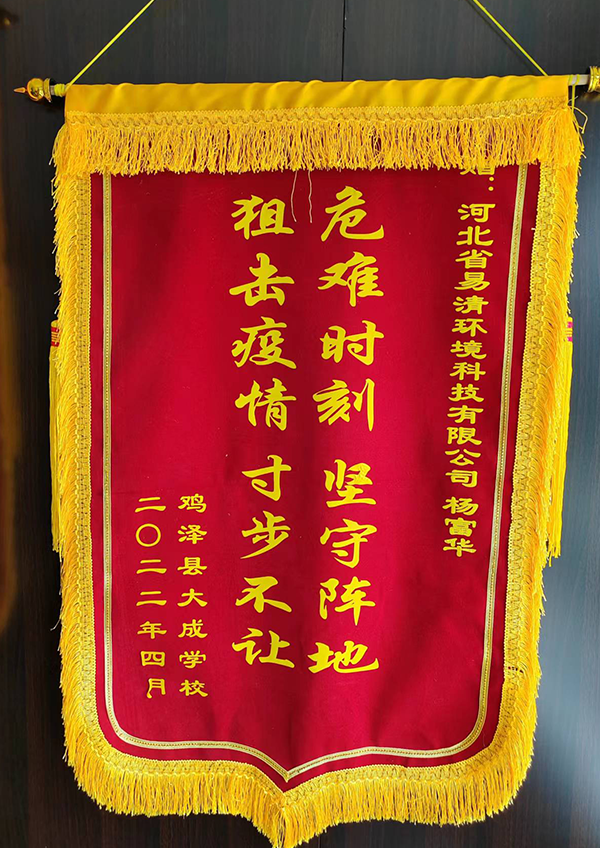 赠：河北省易清环境科技有限公司 杨富华
危难时刻 坚守阵地
狙击疫情 寸步不让
鸡泽县大成学校
二〇二二年四月